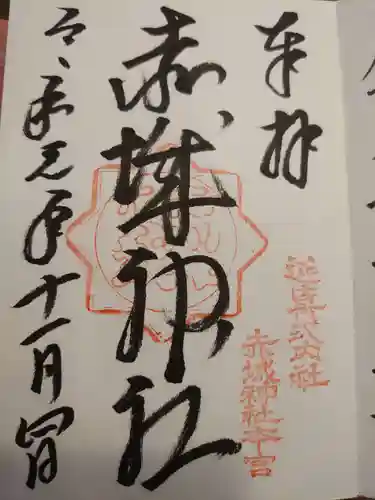 奉拝
延喜式内社
赤城神社本宮
赤城神社
令和元年十一月四日